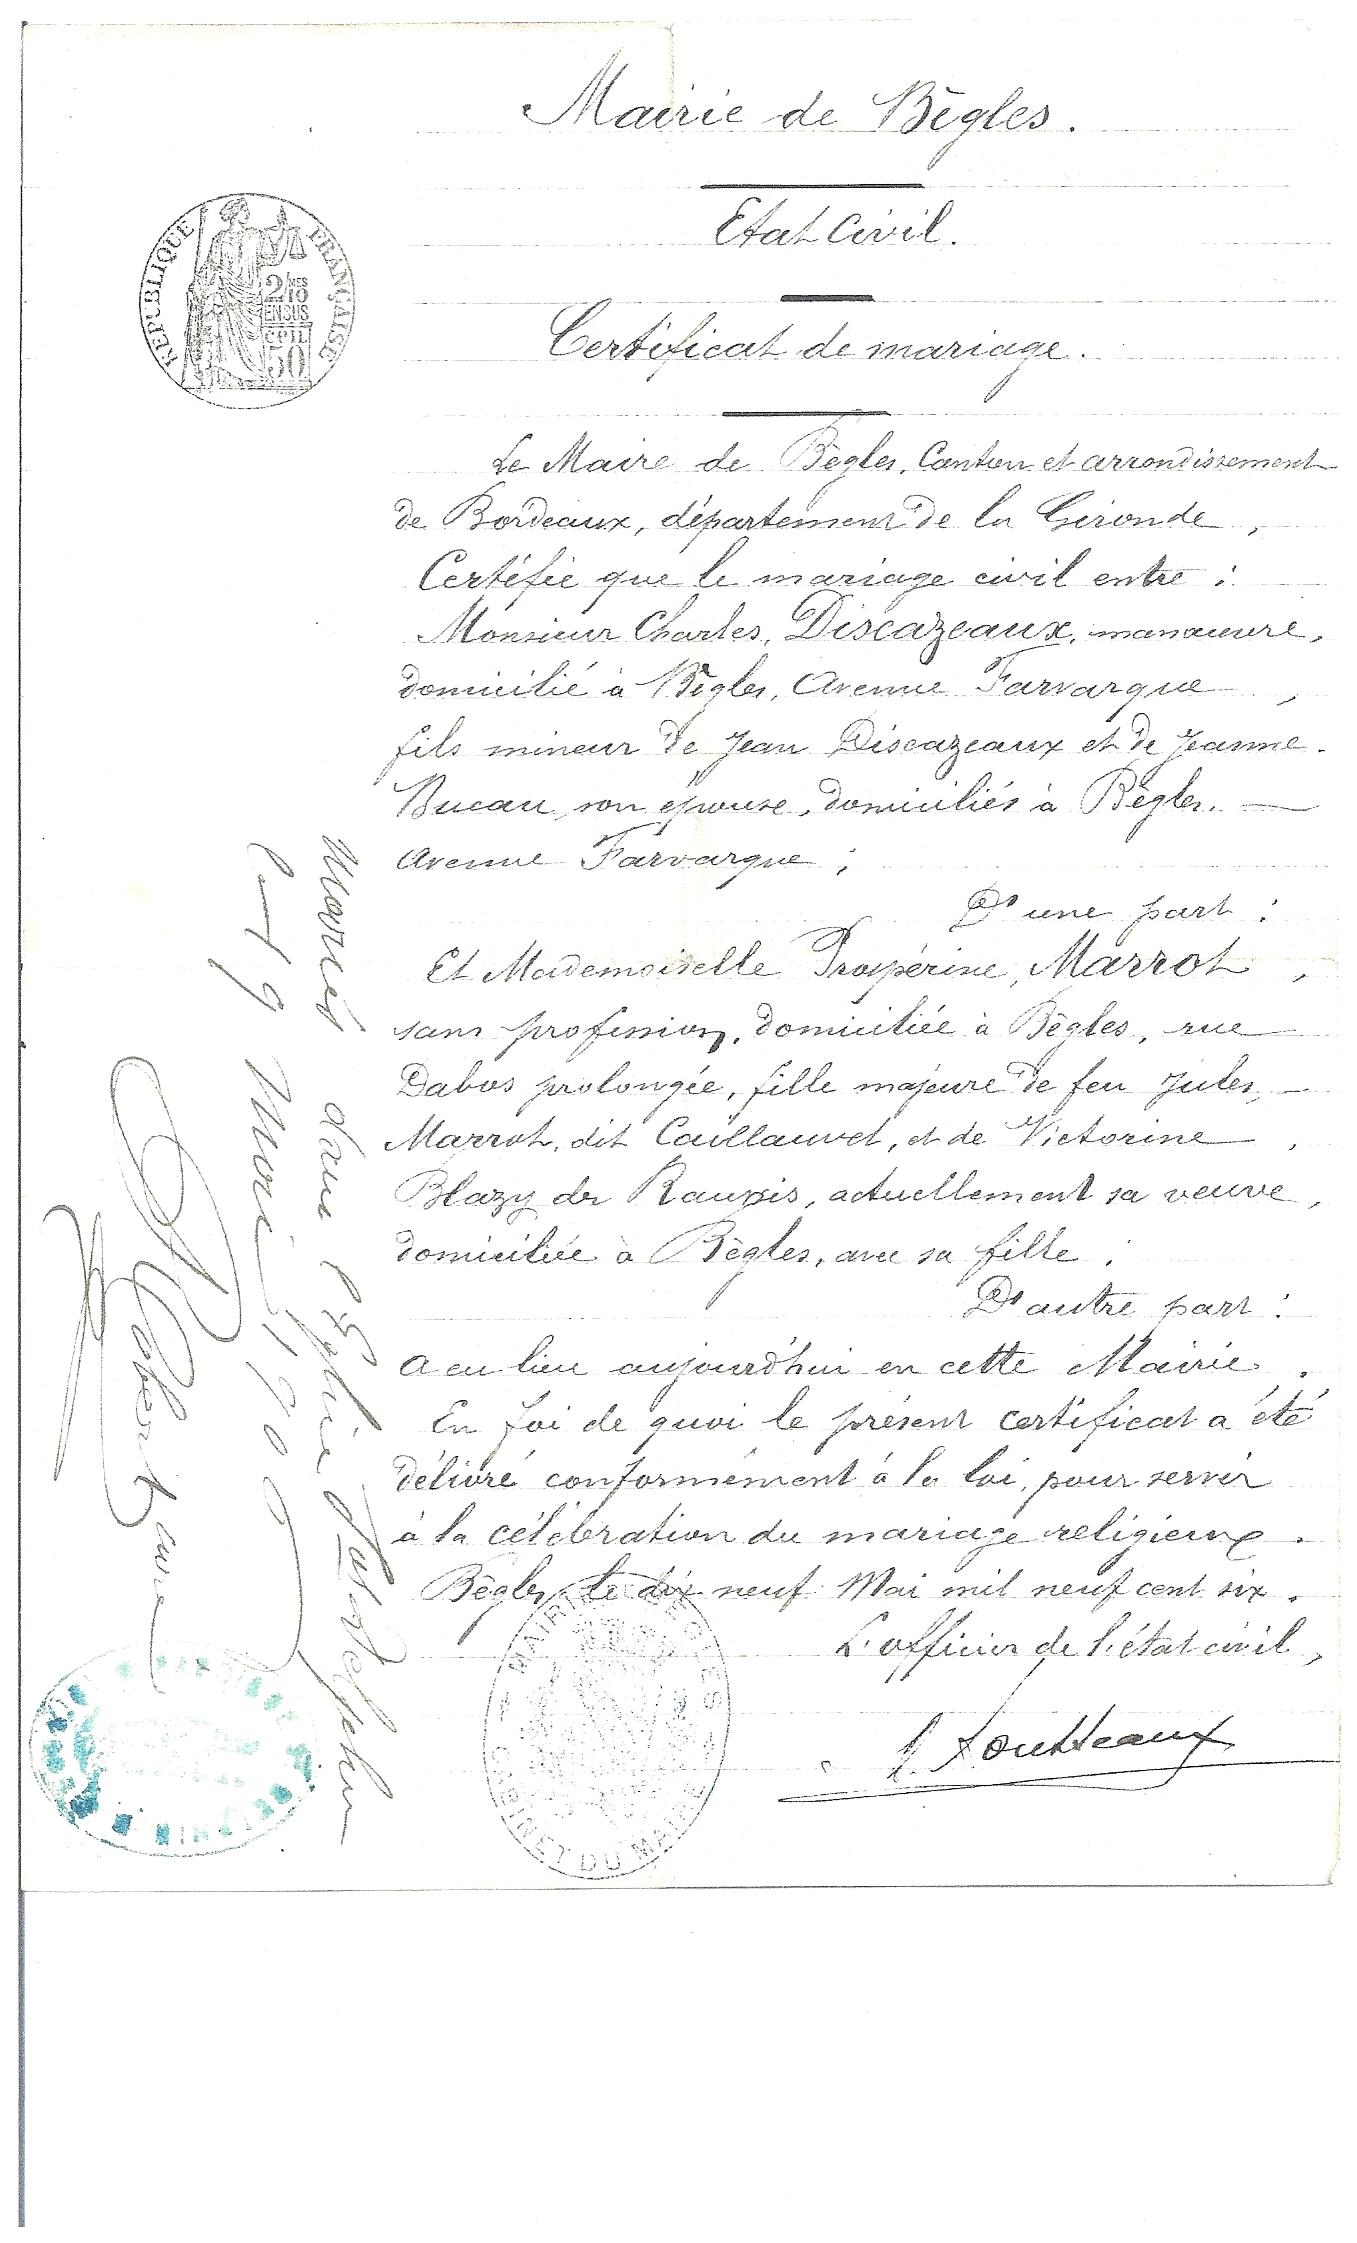 Mairie de Bègles.
Etat Civil.
RÉPUBLIQUE FRANÇAISE
2/10 MES
EN SUS
50
Certificat de mariage.
Le Maire de Bègles, Canton et arrondissement
de Bordeaux, département de la Gironde,
Certifie que le mariage civil entre :
Monsieur Charles, Discazeaux, manœuvre,
domicilié à Bègles, Avenue Farvarque,
fils mineur de Jean Discazeaux et de Jeanne
Bucau, son épouse, domiciliés à Bègles.
Avenue Farvarque ;
D'une part :
Et Mademoiselle Prospérine, Marrot,
sans profession, domiciliée à Bègles, rue
Dabos prolongée, fille majeure de feu Jules,
Marrot, dit Caillauvet, et de Victorine
Blazy de Raupis, actuellement sa veuve,
domiciliée à Bègles, avec sa fille ;
D'autre part :
a eu lieu aujourd'hui en cette Mairie.
En foi de quoi le présent certificat a été
délivré conformément à la loi, pour servir
à la célébration du mariage religieux.
Bègles, le dix neuf Mai mil neuf cent six.
L'officier de l'état civil,
MAIRIE DE BÈGLES
CABINET DU MAIRE
Mariés dans l'Eglise
19 Mai 1906
Robert